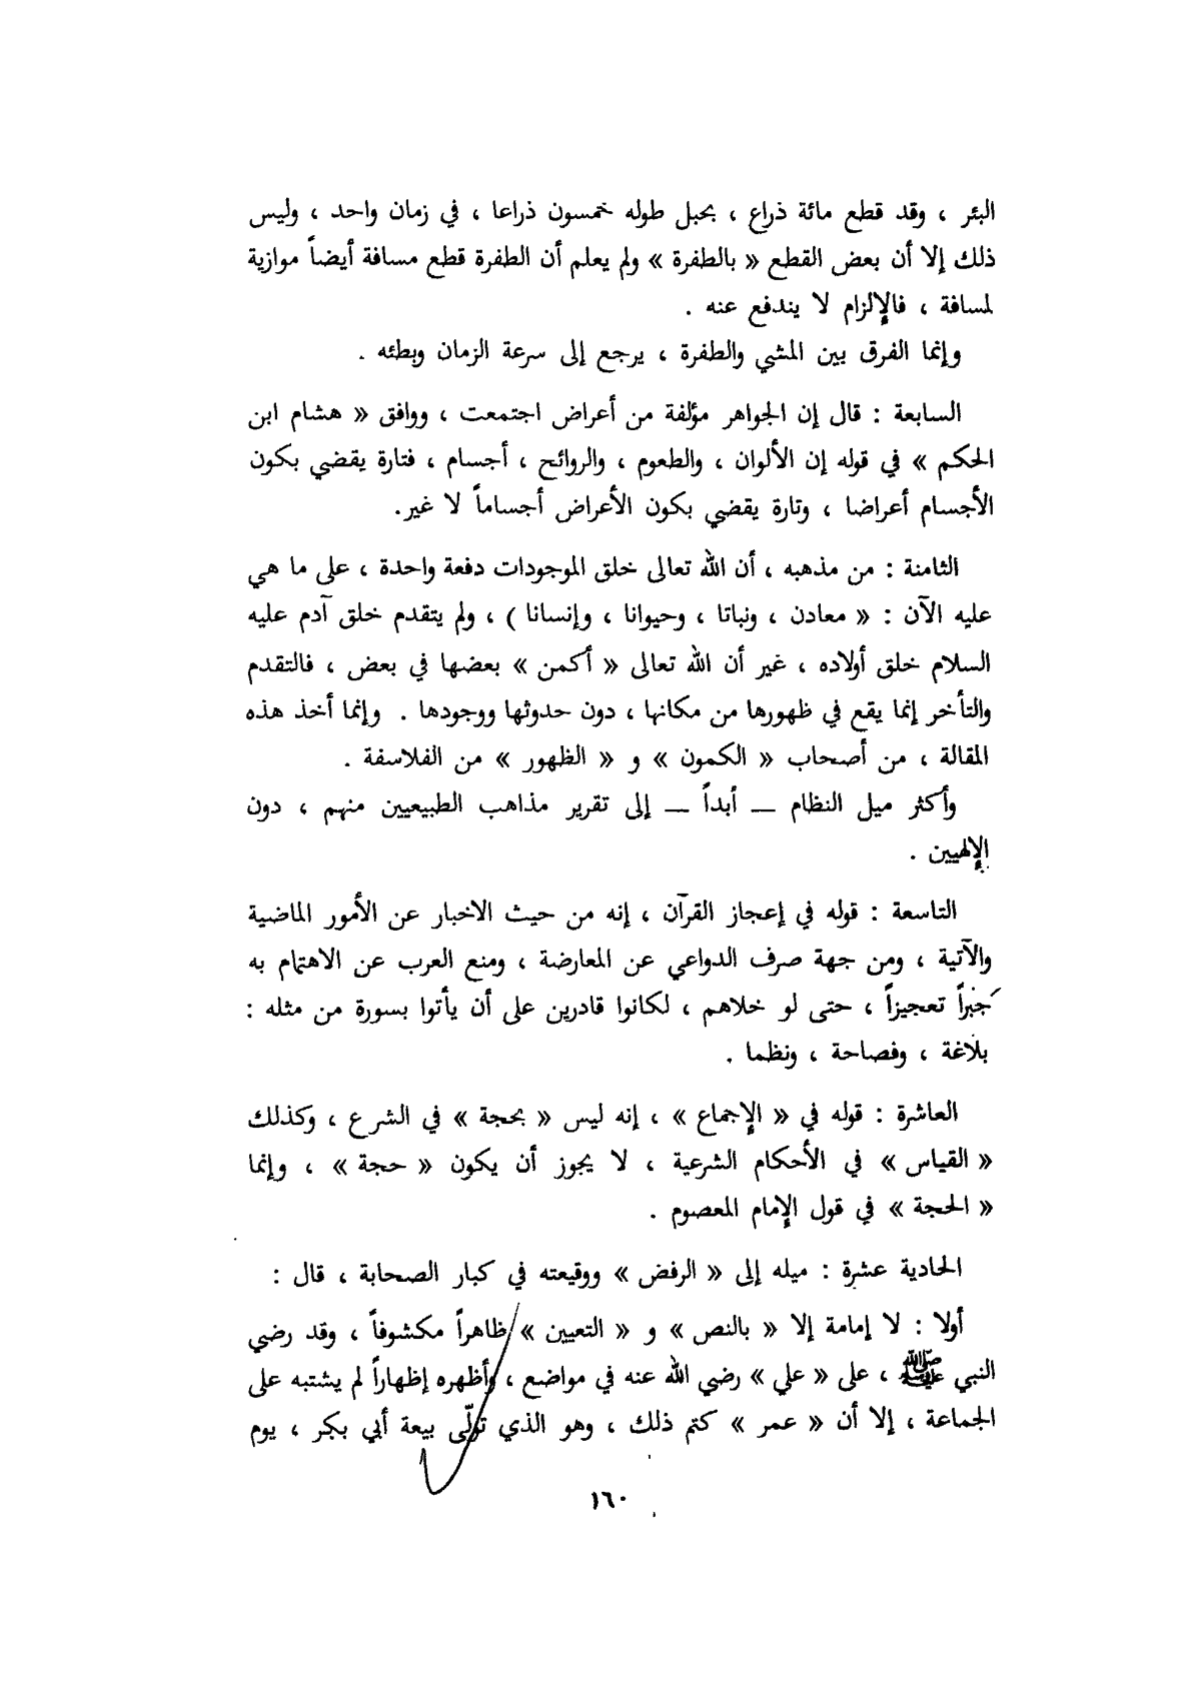 البئر ، وقد قطع مائة ذراع ، بحبل طوله خمسون ذراعا ، في زمان واحد ، وليس
ذلك إلا أن بعض القطع « بالطفرة » ولم يعلم أن الطفرة قطع مسافة أيضاً موازية
لمسافة ، فالإلزام لا يندفع عنه .
وإنما الفرق بين المشي والطفرة ، يرجع إلى سرعة الزمان وبطئه .
السابعة : قال إن الجواهر مؤلفة من أعراض اجتمعت ، ووافق « هشام ابن
الحكم » في قوله إن الألوان ، والطعوم ، والروائح ، أجسام ، فتارة يقضي بكون
الأجسام أعراضا ، وتارة يقضي بكون الأعراض أجساماً لا غير.
الثامنة : من مذهبه ، أن الله تعالى خلق الموجودات دفعة واحدة ، على ما هي
عليه الآن : « معادن ، ونباتا ، وحيوانا ، وإنسانا ) ، ولم يتقدم خلق آدم عليه
السلام خلق أولاده ، غير أن الله تعالى « أكمن » بعضها في بعض ، فالتقدم
والتأخر إنما يقع في ظهورها من مكانها ، دون حدوثها ووجودها . وإنما أخذ هذه
المقالة ، من أصحاب « الكمون » و « الظهور » من الفلاسفة .
وأكثر ميل النظام — أبداً — إلى تقرير مذاهب الطبيعيين منهم ، دون
الإلهيين .
التاسعة : قوله في إعجاز القرآن ، إنه من حيث الاخبار عن الأمور الماضية
والآتية ، ومن جهة صرف الدواعي عن المعارضة ، ومنع العرب عن الاهتمام به
جبراً تعجيزاً ، حتى لو خلاهم ، لكانوا قادرين على أن يأتوا بسورة من مثله :
بلاغة ، وفصاحة ، ونظما .
العاشرة : قوله في « الإجماع » ، إنه ليس « بحجة » في الشرع ، وكذلك
« القياس » في الأحكام الشرعية ، لا يجوز أن يكون « حجة » ، وإنما
« الحجة » في قول الإمام المعصوم .
الحادية عشرة : ميله إلى « الرفض » ووقيعته في كبار الصحابة ، قال :
أولا : لا إمامة إلا « بالنص » و « التعيين » ظاهراً مكشوفاً ، وقد رضي
النبي ﷺ ، على « علي » رضي الله عنه في مواضع ، وأظهره إظهاراً لم يشتبه على
الجماعة ، إلا أن « عمر » كتم ذلك ، وهو الذي تولّى بيعة أبي بكر ، يوم
١٦٠